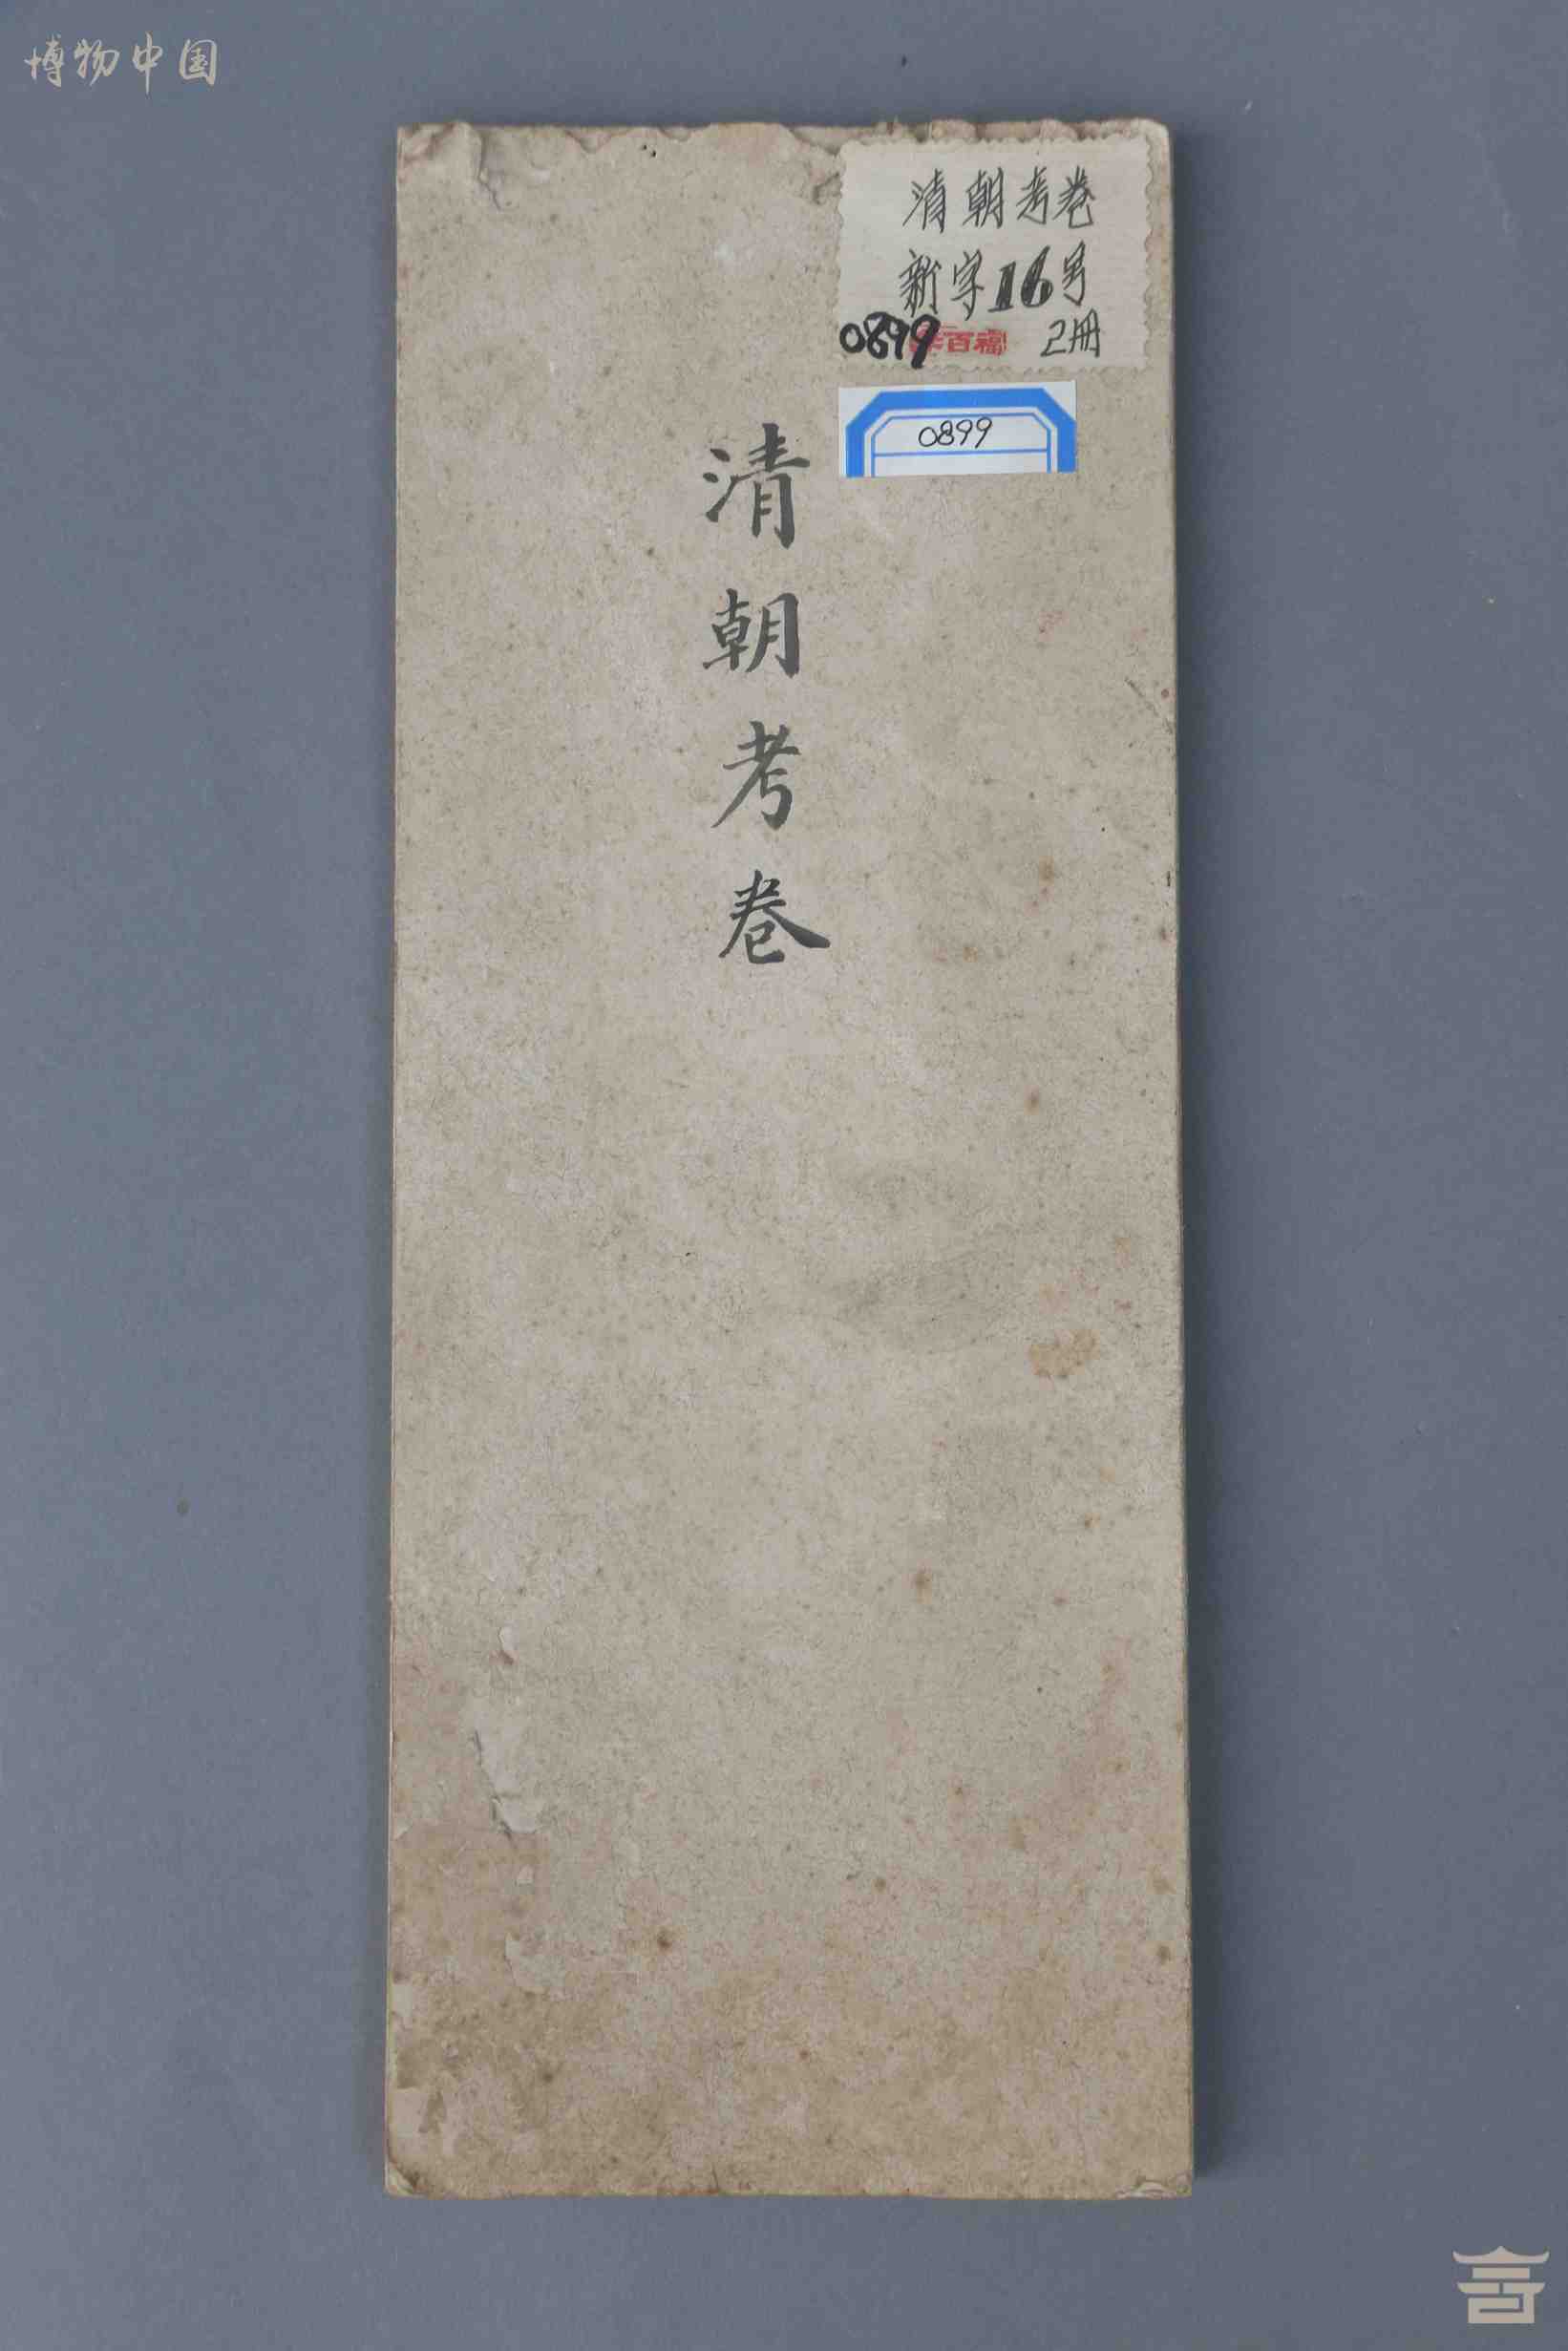 博物中国
清朝考卷
新字16号
0899
百福
2册
0899
清朝考卷